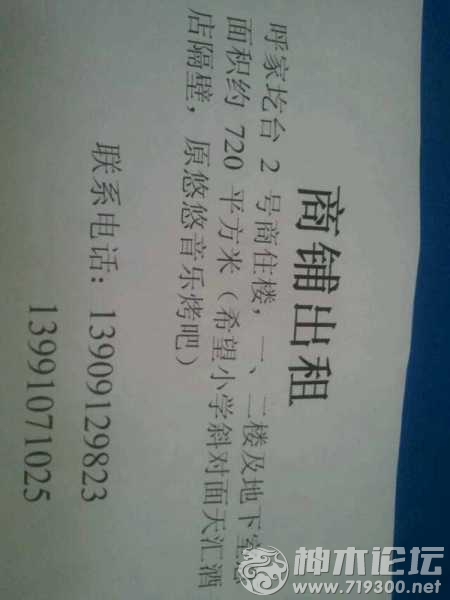 商铺出租
呼家圪台 2 号商住楼，一、二楼及地下室总
面积约 720 平方米（希望小学斜对面天汇酒
店隔壁，原悠悠音乐烤吧）
联系电话：13909129823
13991071025
神木论坛
www.719300.net